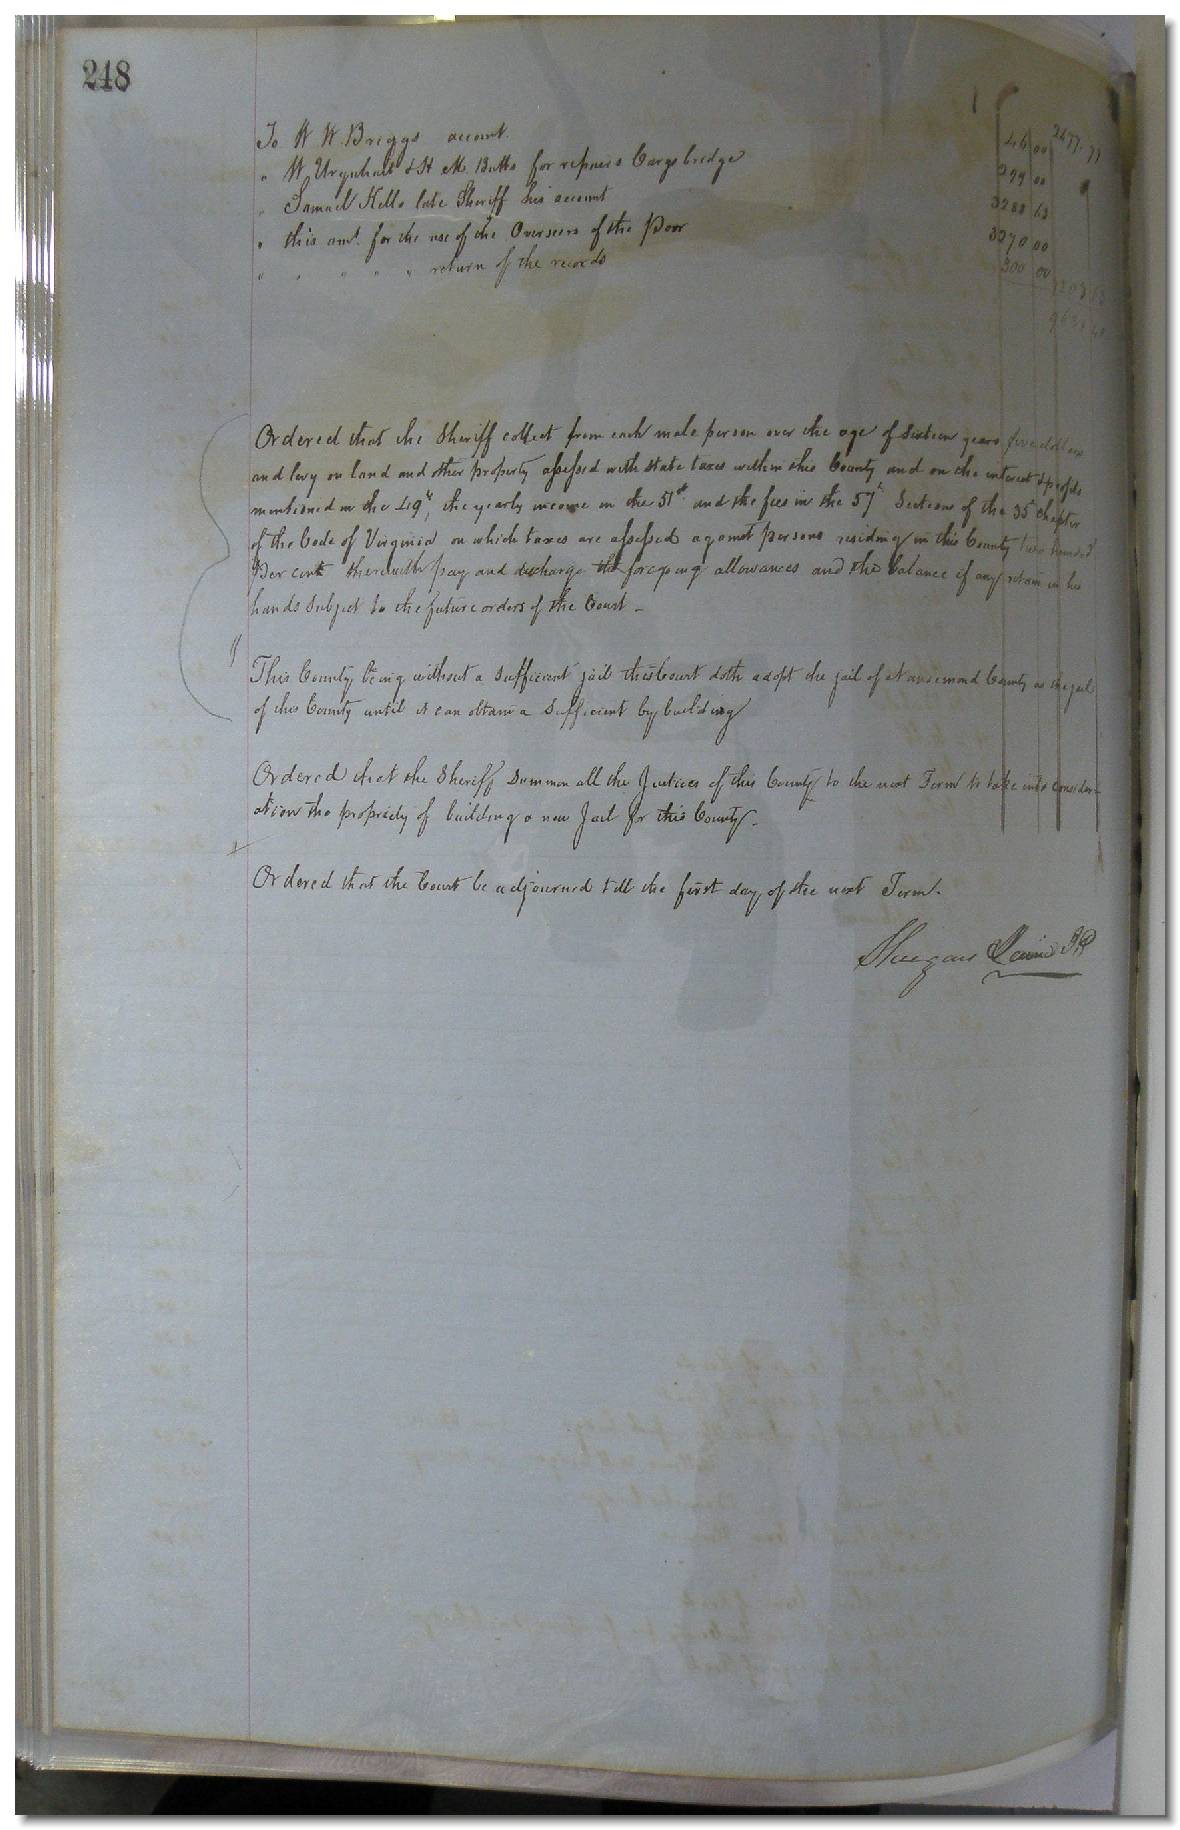 248
2477.77
To W W. Briggs account. 46 00
" W Urquhart & H M. Butts for repairs Cargs bridge 299 00
" Samuel Kello late Sheriff his account 3288 63
" this amt. for the use of the Overseers of the Poor 3270 00
" " " " " return of the records 300 00
Ordered that the Sheriff collect from each male person over the age of Sixteen years five dollars
and levy on land and other property assessed with state taxes within this County and on the interest & profits
mentioned in the 49th, the yearly income in the 51st and the fees in the 57th Sections of the 35th chapter
of the Code of Virginia on which taxes are assessed against persons residing in this County two hundred
Per cent therewith pay and discharge the foregoing allowances and the balance if any retain in his
hands Subject to the future orders of the Court -
This County being without a Sufficient jail this Court doth adopt the jail of Nansemond County as the jail
of this County until it can obtain a Sufficient by building
Ordered that the Sheriff Summon all the Justices of this County to the next Term to take into consider-
ation the propriety of building a new Jail for this County.
Ordered that the Court be adjourned till the first day of the next Term.
JP